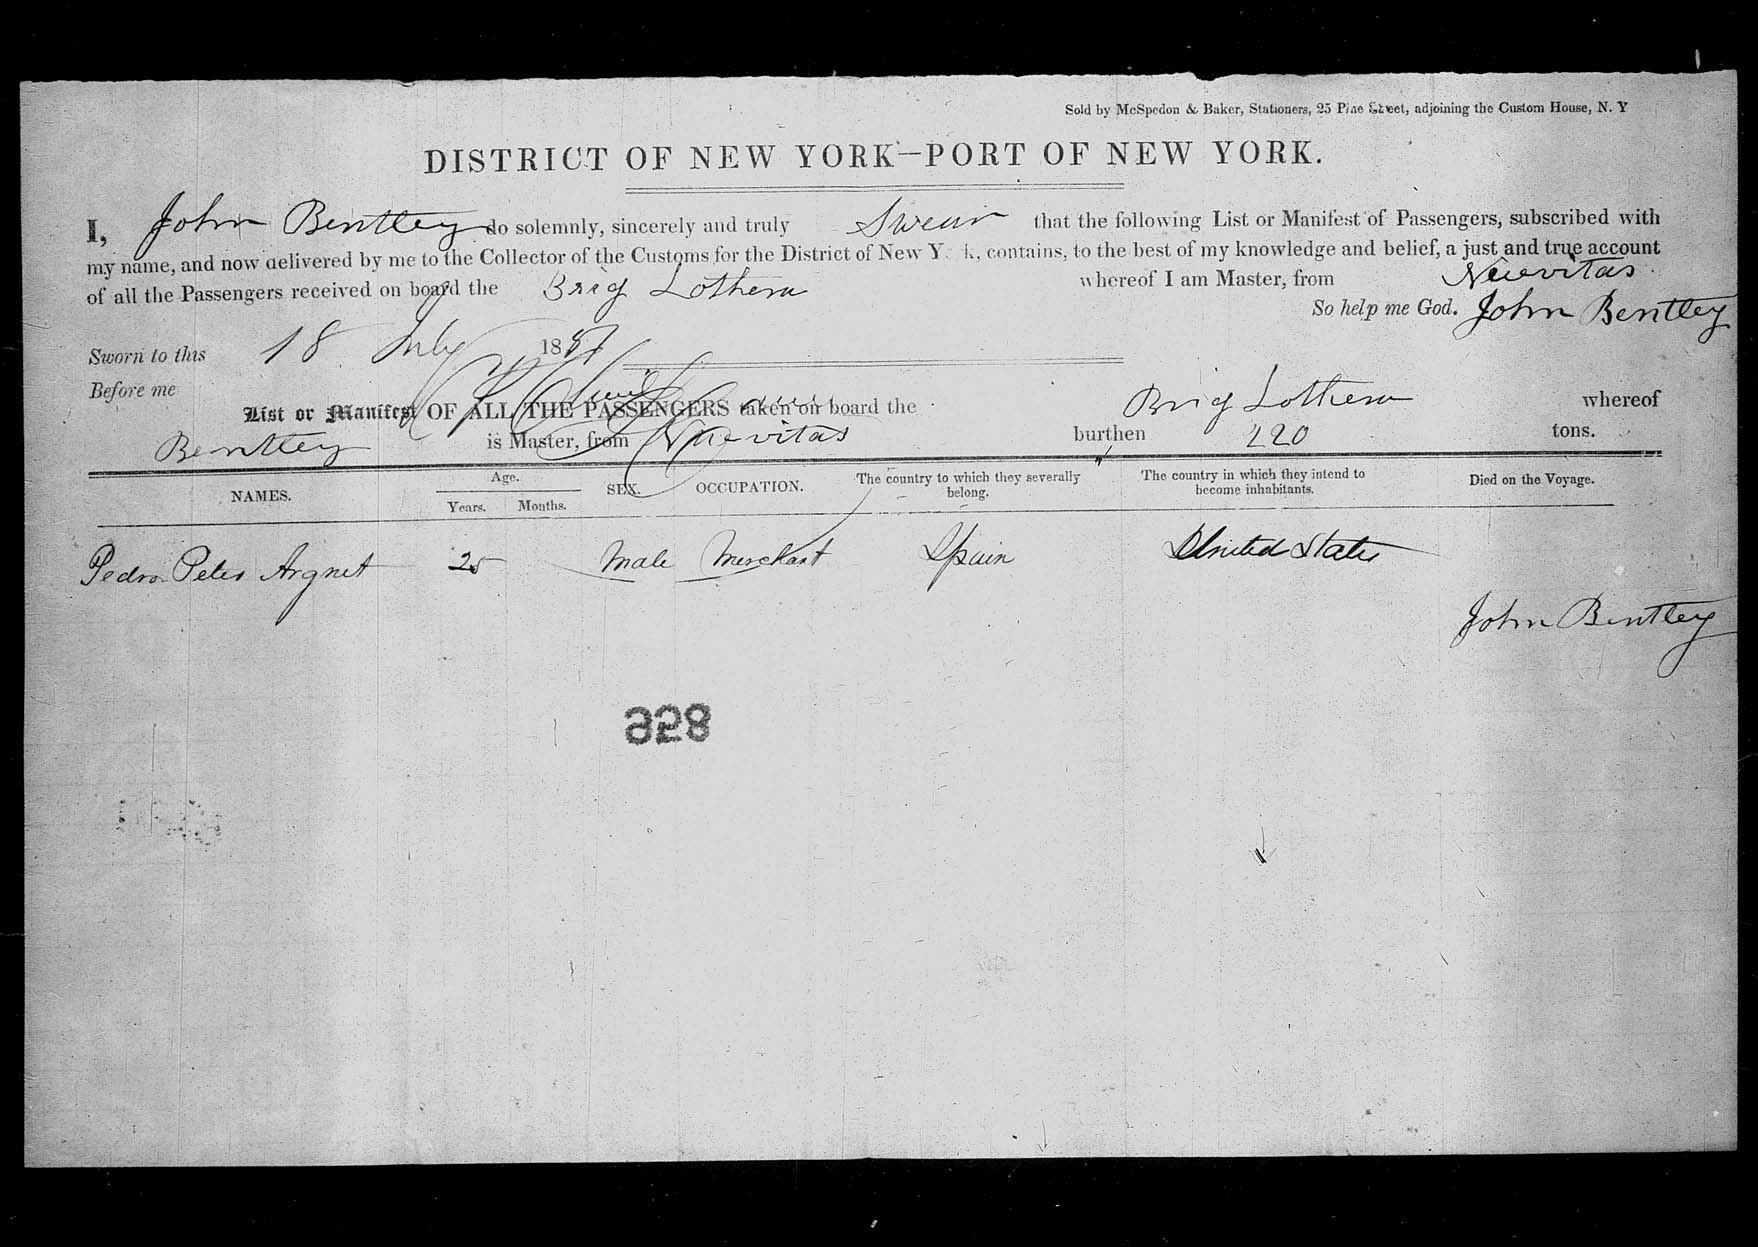 Sold by McSpedon & Baker, Stationers, 25 Pine Street, adjoining the Custom House, N. Y
DISTRICT OF NEW YORK—PORT OF NEW YORK.
I, John Bentley do solemnly, sincerely and truly Swear that the following List or Manifest of Passengers, subscribed with
my name, and now delivered by me to the Collector of the Customs for the District of New Y k, contains, to the best of my knowledge and belief, a just and true account
of all the Passengers received on board the Brig Lothern whereof I am Master, from Nuevitas
So help me God. John Bentley
Sworn to this 18 July 185
Before me
List or Manifest OF ALL THE PASSENGERS taken on board the Brig Lothern whereof
Bentley is Master, from Nuevitas burthen 220 tons.
NAMES. Age. Years. Months. SEX. OCCUPATION. The country to which they severally belong. The country in which they intend to become inhabitants. Died on the Voyage.
Pedro Peter Argnet 25 Male Merchant Spain United States
John Bentley
856